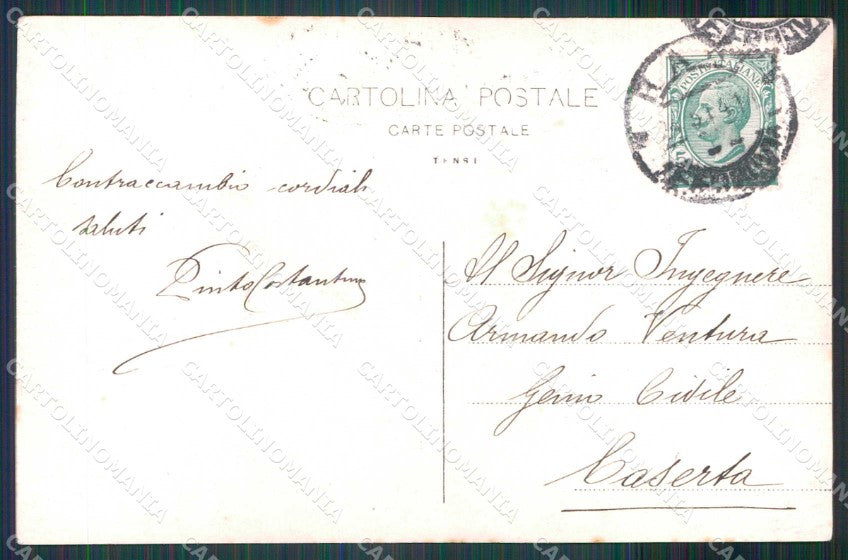 CARTOLINA POSTALE
CARTE POSTALE
TENSI
POSTE ITALIANE
Contraccambio cordiali
saluti
Pinto Costantino
Al Signor Ingegnere
Armando Ventura
Genio Civile
Caserta
CARTOLINOMANIA